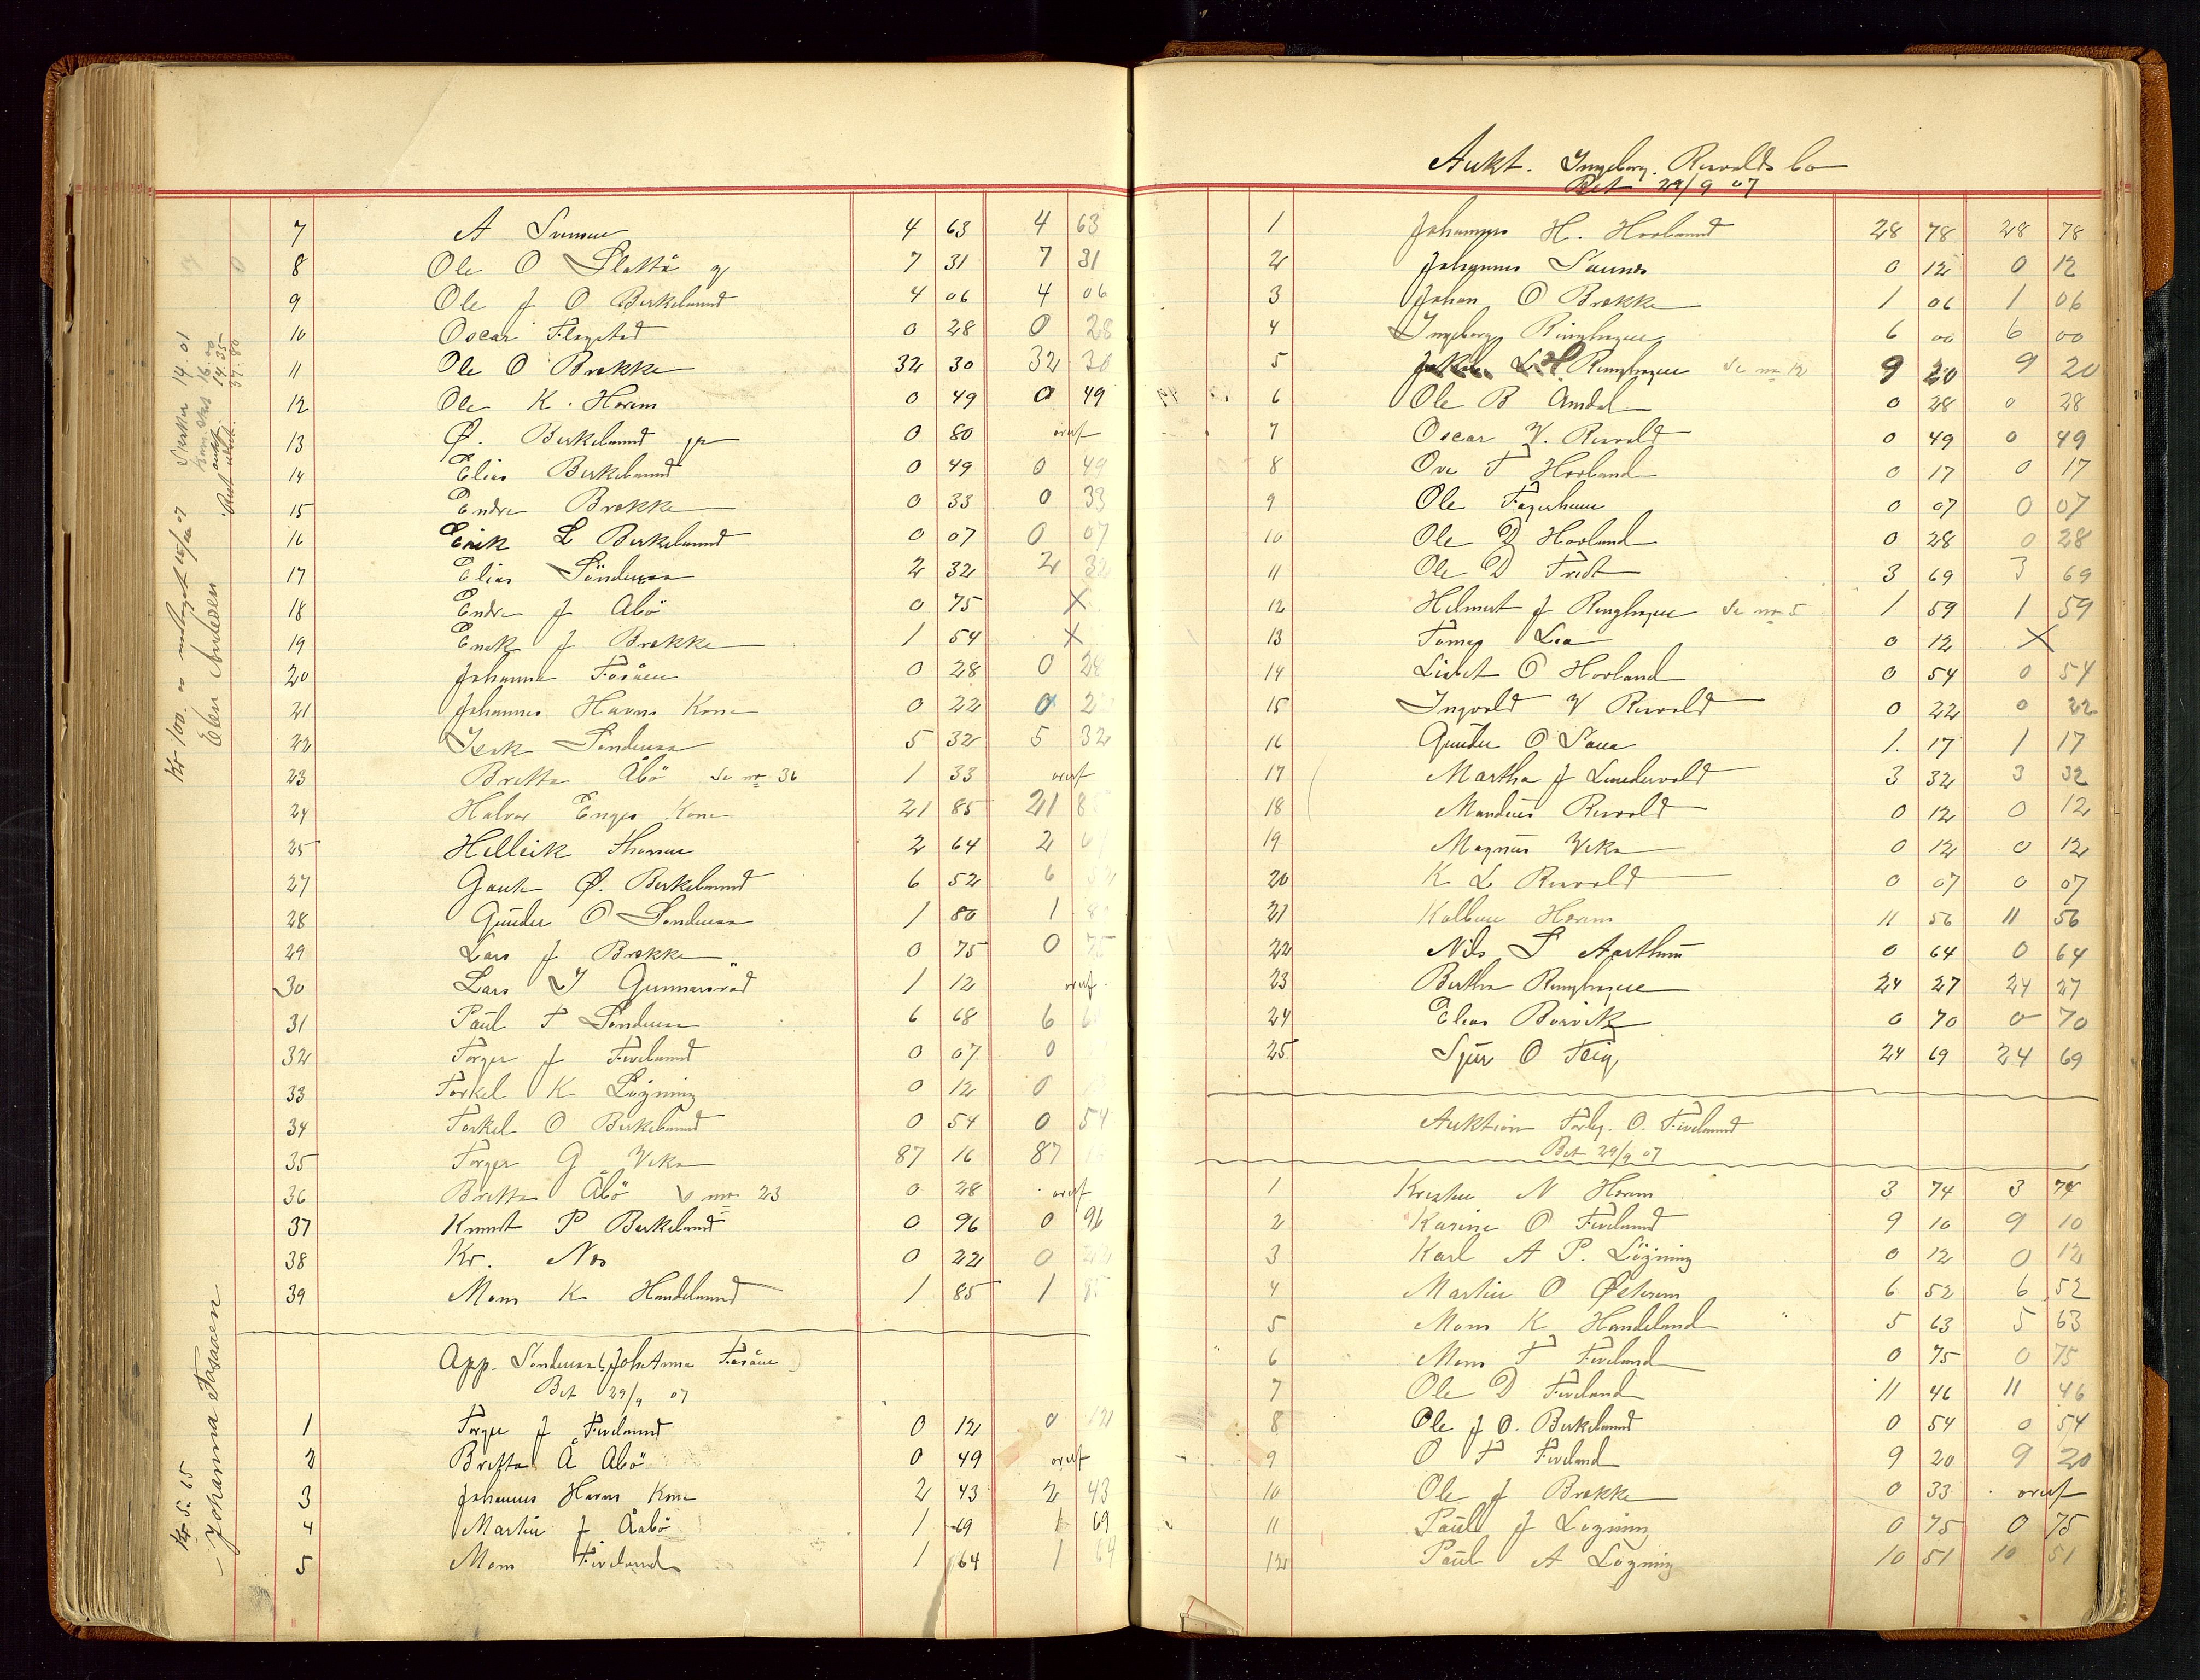 7 A Svensen 4 63 4 63
8 Ole O Slettå 7 31 7 31
9 Ole J O Birkeland 4 06 4 06
10 Oscar Flogstad 0 28 0 28
11 Ole O Brekke 32 30 32 30
12 Ole K. Horem 0 49 0 49
13 Ø. Birkeland jr 0 80 overf
14 Elias Birkeland 0 49 0 49
15 Endre Brekke 0 33 0 33
16 Erik L Birkeland 0 07 0 07
17 Elias Söndenaa 2 32 2 32
18 Endre J Abö 0 75 X
19 J Brekke 1 54 X
20 Johanna Fosåen 0 28 0 28
21 Johannes Havns Kone 0 22 0 2
22 Isak Söndenaa 5 32 5 32
23 Britta Åbö Se no 36 1 33 overf
24 Halvor Enges Kone 21 85 21 85
25 Helleik 2 64 2 64
27 Gaute Ø. Birkeland 6 52 6 52
28 Gunder O Söndenaa 1 80 1 80
29 Lars J Brekke 0 75 0 75
30 Lars Gunnarsvåd 1 12 overf.
31 Paul T Söndenaa 6 68 6 6
32 Torger J Fiveland 0 07 0
33 Torkel K Lögning 0 12 0
34 Torkel O Birkeland 0 54 0 54
35 Torger G Veka 87 16 87 16
36 Britta Åbö no 23 0 28 overf
37 Knut P Birkeland 0 96 0 96
38 Kr. Nes 0 22 0 22
39 Mons K Handeland 1 85 1 85
App. Söndenaa (Johanna Fosåen)
Bet 29/9 07
1 Torger J Fiveland 0 12 0 12
2 Britta Å Abö 0 49 overf
3 Johannes Havns Kone 2 43 2 43
4 Martin J Åabö 1 69 1 69
5 Mons Fiveland 1 64 1 64
Kr 100.00 modtaget 15/10 07
Elen Andersen
14.01
16.00
14.35
37.80
Kr 5.65
Johanna Fosaaen
Aukt. Ingeborg Risvolds bo
Bet 29/9 07
1 Johannes H. Hovland 28 78 28 78
2 Johannes Saunes 0 12 0 12
3 Johan O Brekke 1 06 1 06
4 Ingeborg Ringhagen 6 00 6 00
5 Ringhagen Se no 12 9 20 9 20
6 Ole B Amdal 0 28 0 28
7 Oscar V. Risvold 0 49 0 49
8 Ove T Hovland 0 17 0 17
9 Ole Fagerheim 0 07 0 07
10 Ole D Hovland 0 28 0 28
11 Ole D Tredt 3 69 3 69
12 Helmert J Ringhagen Se no 5 1 59 1 59
13 Lea 0 12 X
14 Lisbet O Hovland 0 54 0 54
15 Ingvald V Risvold 0 22 0 22
16 Gunder O Saua 1. 17 1 17
17 Martha J Lundervold 3 32 3 32
18 Mandius Risvold 0 12 0 12
19 Magnus Veka 0 12 0 12
20 K L Risvold 0 07 0 07
21 Kolben Horem 11 56 11 56
22 Nils S Aarthun 0 64 0 64
23 Bertha Ringhagen 24 27 24 27
24 Elias Borvik 0 70 0 70
25 Sjur O Teig 24 69 24 69
Auktion Torbj. O. Fiveland
Bet 29/9 07
1 Kristen N Horem 3 74 3 74
2 Karine O Fiveland 9 10 9 10
3 Karl A P. Lögning 0 12 0 12
4 Martin O Östrem 6 52 6 52
5 Mons K Handeland 5 63 5 63
6 Mons T Fiveland 0 75 0 75
7 Ole D Fiveland 11 46 11 46
8 Ole J O. Birkeland 0 54 0 54
9 O T Fiveland 9 20 9 20
10 Ole J Brekke 0 33 overf
11 Paul J Lögning 0 75 0 75
12 Paul A Lögning 10 51 10 51